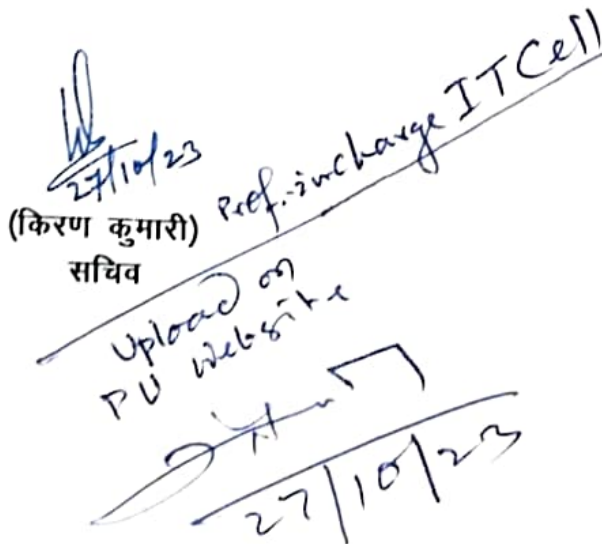 27/10/23
(किरण कुमारी)
सचिव
Prof.-in charge IT Cell
Upload on
PU website
27/10/23